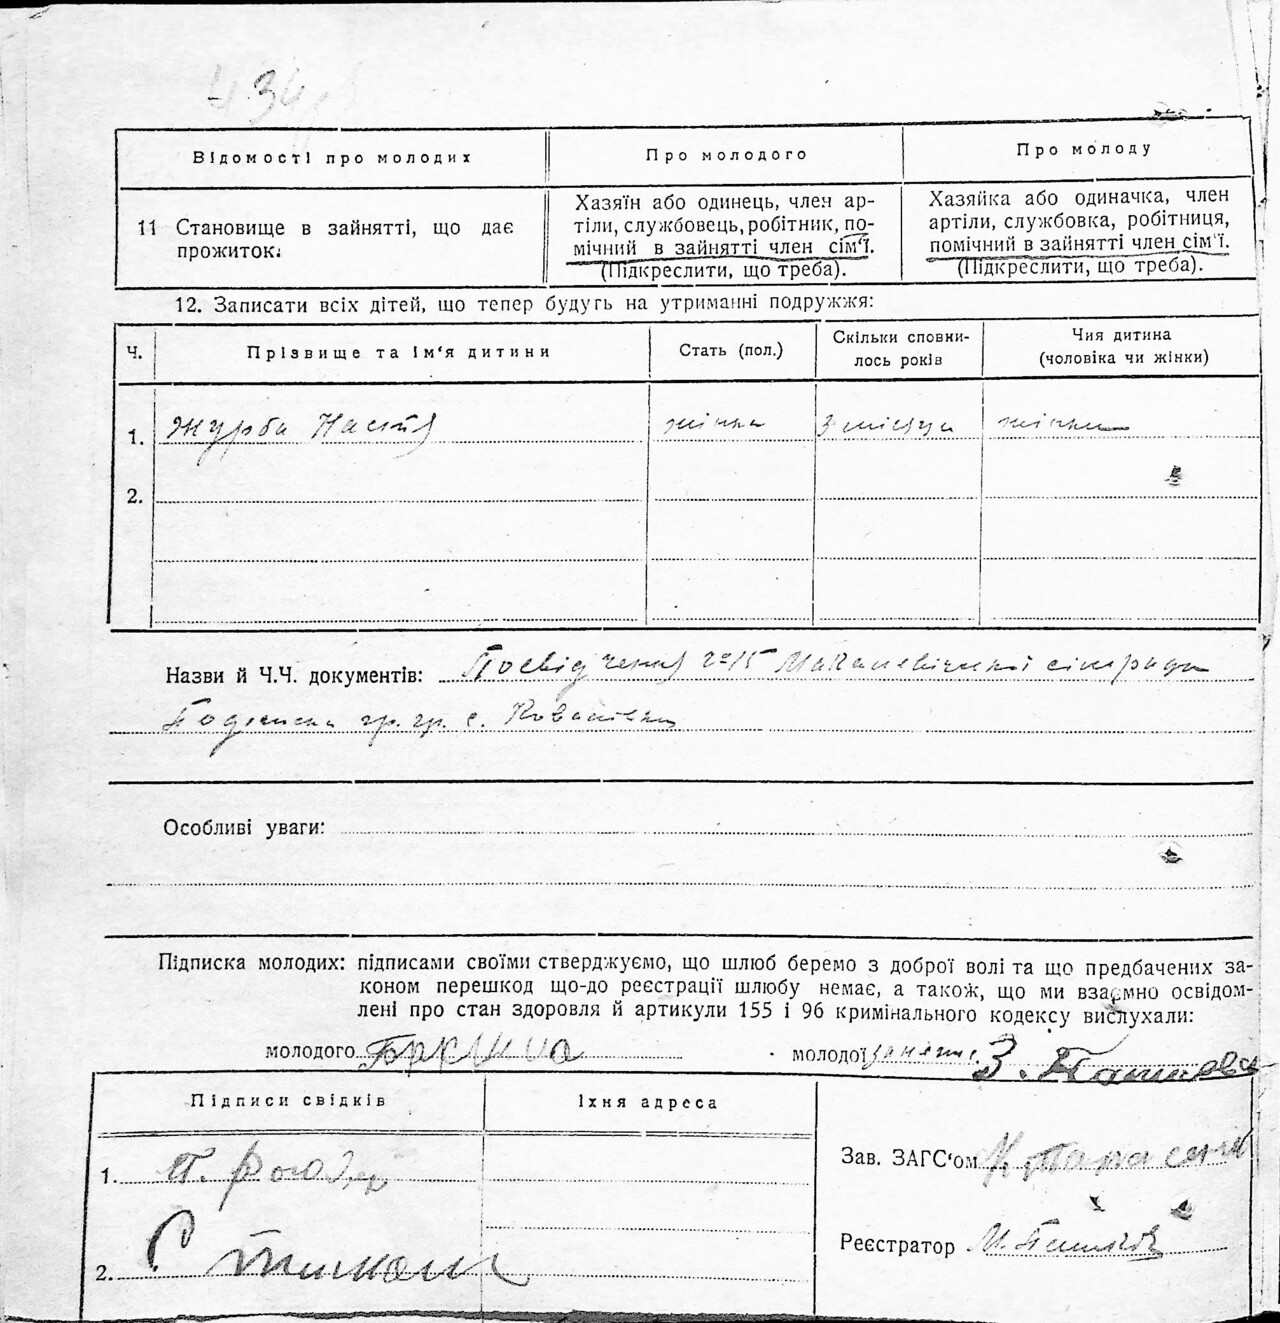 434
Відомості про молодих
Про молодого
Про молоду
11 Становище в зайнятті, що дає
прожиток:
Хазяїн або одинець, член ар-
тіли, службовець, робітник, по-
мічний в зайнятті член сім'ї.
(Підкреслити, що треба).
Хазяйка або одиначка, член
артіли, службовка, робітниця,
помічний в зайнятті член сім'ї.
(Підкреслити, що треба).
12. Записати всіх дітей, що тепер будуть на утриманні подружжя:
Ч.
Прізвище та ім'я дитини
Стать (пол.)
Скільки сповни-
лось років
Чия дитина
(чоловіка чи жінки)
1. Журба Настя жінка 3 місяци жінки
2.
Назви й Ч.Ч. документів: Посвідчення №15 сільради
Подписка гр. гр. с.
Особливі уваги:
Підписка молодих: підписами своїми стверджуємо, що шлюб беремо з доброї волі та що предбачених за-
коном перешкод що-до реєстрації шлюбу немає, а також, що ми взаємно освідом-
лені про стан здоровля й артикули 155 і 96 кримінального кодексу вислухали:
молодого
молодої З.
Підписи свідків
Їхня адреса
1. П.
2. С.
Зав. ЗАГС'ом
Реєстратор М.